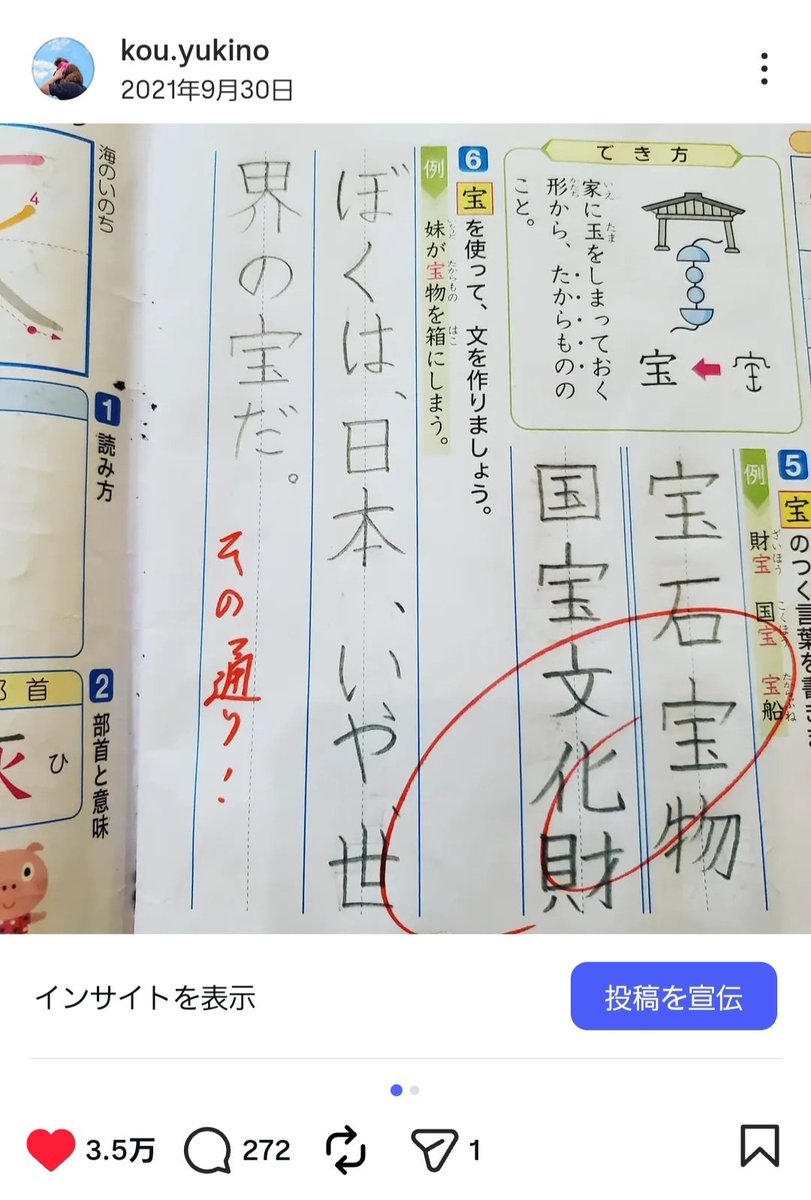 kou.yukino
2021年9月30日
でき方
家に玉をしまっておく
いえ
たま
形から、たからものの
かたち
こと。
宝
5
宝のつく言葉を書
例
財宝 国宝 宝船
ざいほう
こくほう
たからぶね
宝石 宝物
国宝文化財
6
宝を使って、文を作りましょう。
例
妹が宝物を箱にしまう。
いもうと
たからもの
はこ
ぼくは、日本、いや世
界の宝だ。
その通り!
海のいのち
4
1
読み方
2
部首と意味
部首
灰
ひ
インサイトを表示
投稿を宣伝
3.5万
272
1